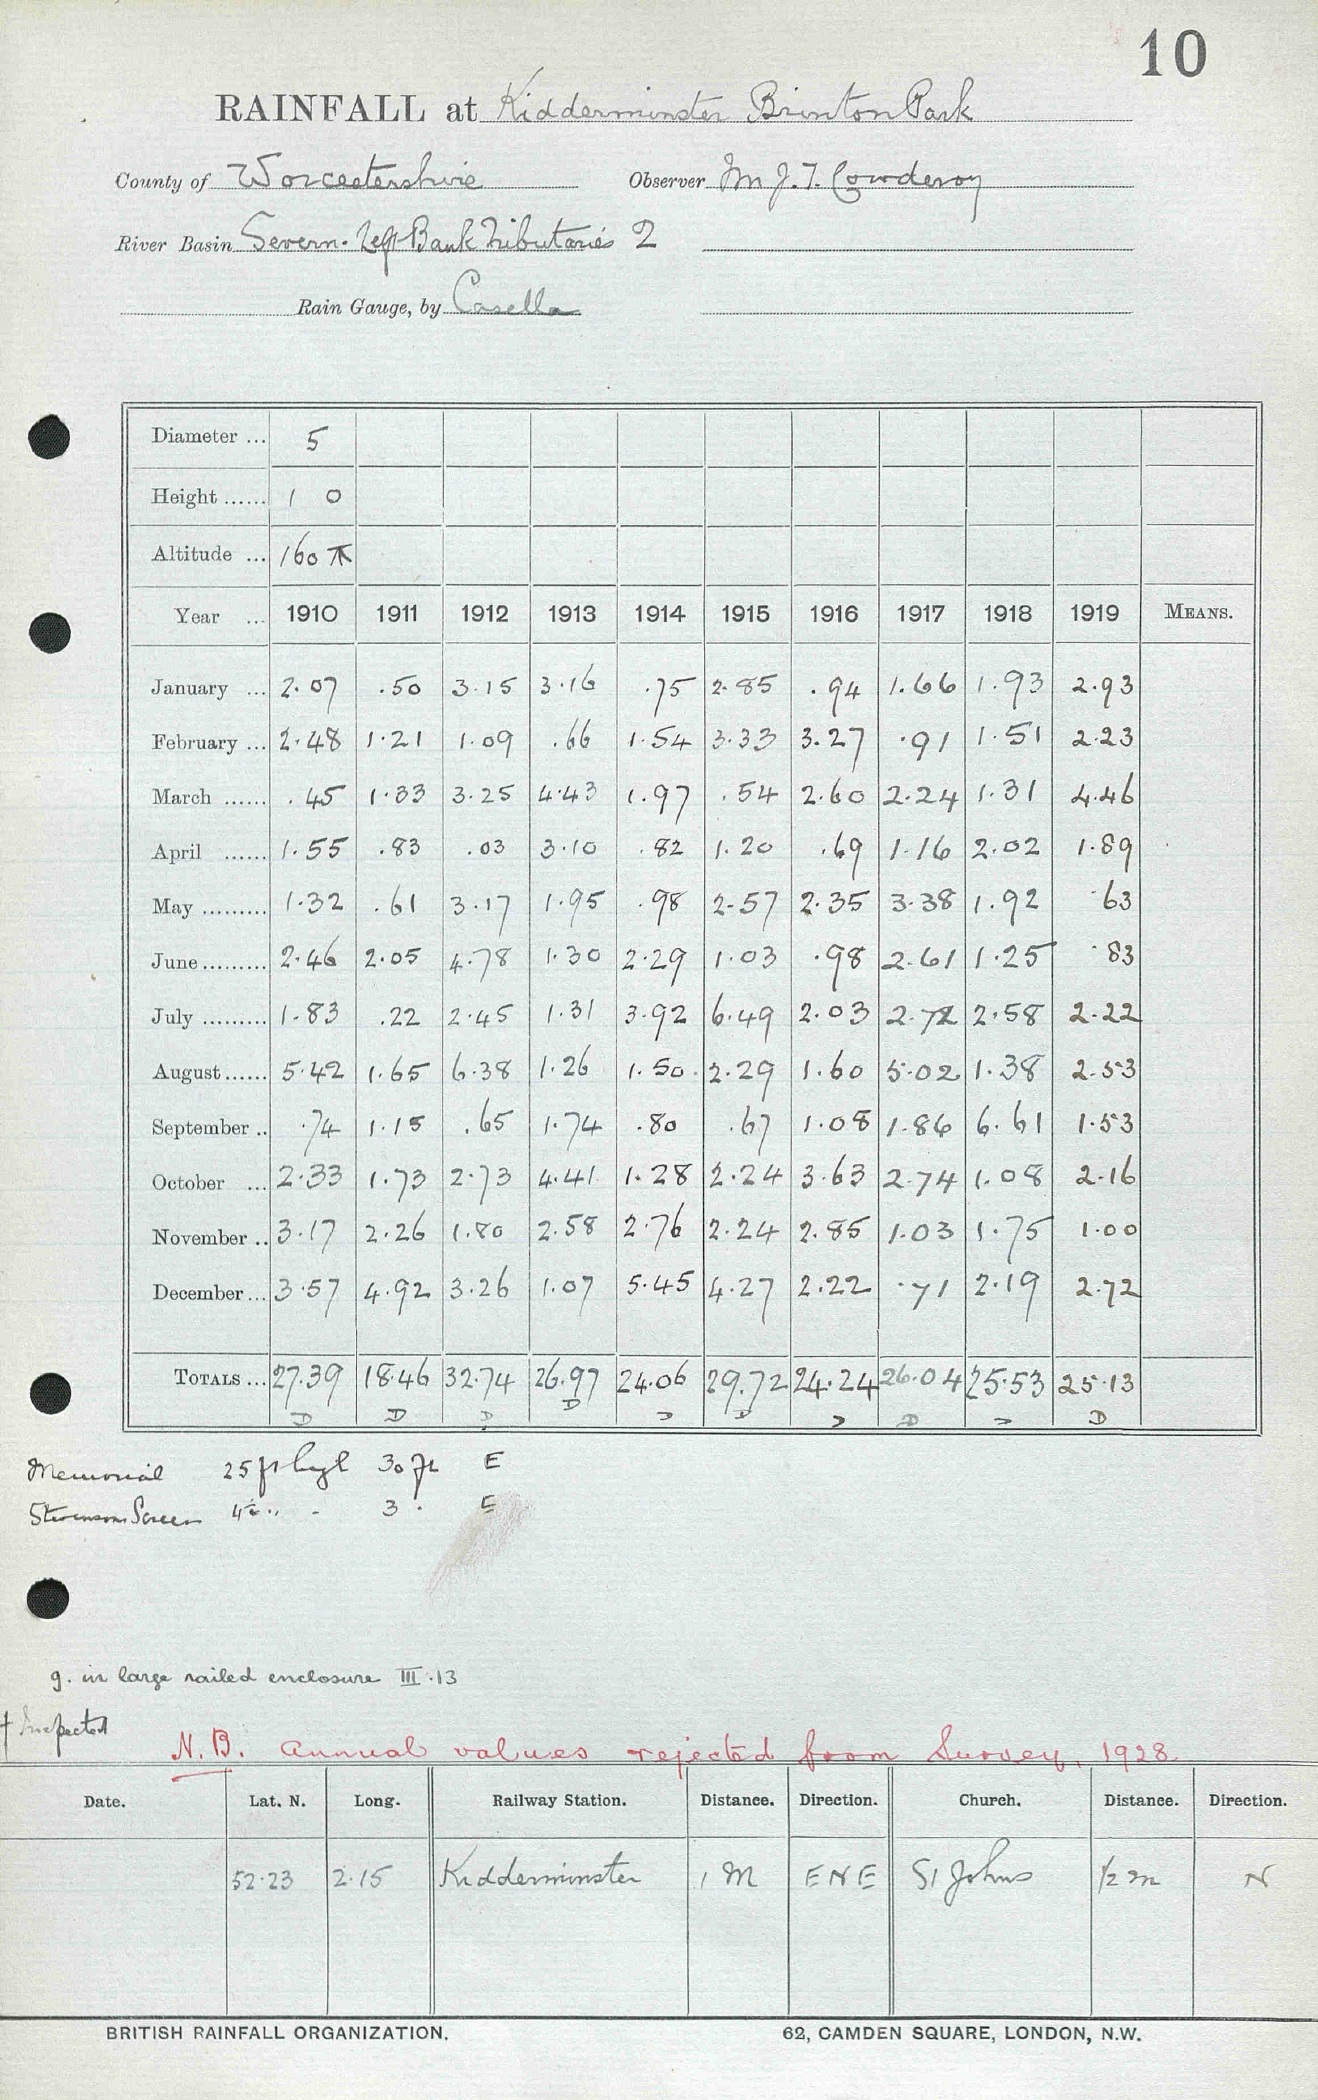 10
RAINFALL at Kidderminster Brinton Park
County of Worcestershire Observer Mr J. T. Cowderoy
River Basin Severn. Left Bank Tributaries 2
Rain Gauge, by Casella
Diameter ... 5
Height ...... 1 0
Altitude ... 160
Year ... 1910 1911 1912 1913 1914 1915 1916 1917 1918 1919 MEANS.
January ... 2.07 .50 3.15 3.16 .75 2.85 .94 1.66 1.93 2.93
February ... 2.48 1.21 1.09 .66 1.54 3.33 3.27 .91 1.51 2.23
March ...... .45 1.33 3.25 4.43 1.97 .54 2.60 2.24 1.31 4.46
April ...... 1.55 .83 .03 3.10 .82 1.20 .69 1.16 2.02 1.89
May ......... 1.32 .61 3.17 1.95 .98 2.57 2.35 3.38 1.92 .63
June ......... 2.46 2.05 4.78 1.30 2.29 1.03 .98 2.61 1.25 .83
July ......... 1.83 .22 2.45 1.31 3.92 6.49 2.03 2.72 2.58 2.22
August ...... 5.42 1.65 6.38 1.26 1.50 2.29 1.60 5.02 1.38 2.53
September .. .74 1.15 .65 1.74 .80 .67 1.08 1.86 6.61 1.53
October ... 2.33 1.73 2.73 4.41 1.28 2.24 3.63 2.74 1.08 2.16
November .. 3.17 2.26 1.80 2.58 2.76 2.24 2.85 1.03 1.75 1.00
December ... 3.57 4.92 3.26 1.07 5.45 4.27 2.22 .71 2.19 2.72
TOTALS ... 27.39 18.46 32.74 26.97 24.06 29.72 24.24 26.04 25.53 25.13
D D D D D D D D D D
Memorial 25 ft high 30 ft E
Stevenson Screen 4 3 E
g. in large railed enclosure III.13
† Inspected
N.B. Annual values rejected from Survey, 1928.
Date. Lat. N. Long. Railway Station. Distance. Direction. Church. Distance. Direction.
52.23 2.15 Kidderminster 1 M ENE St Johns 1/2 m N
BRITISH RAINFALL ORGANIZATION. 62, CAMDEN SQUARE, LONDON, N.W.